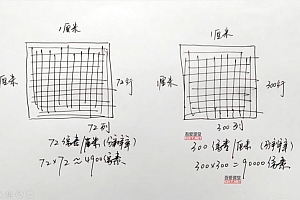 1厘米
厘米
72行
72列
72像素/厘米(分辨率)
72×72≈4900像素
1厘米
厘米
300行
300列
300像素/厘米(分辨率)
300×300=90000像素